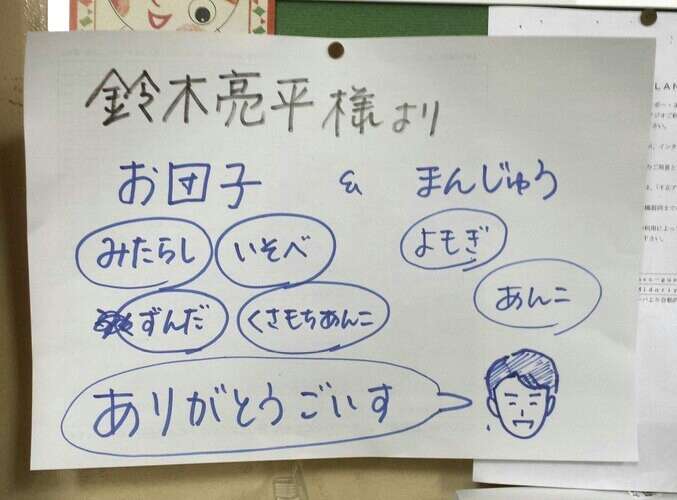 鈴木亮平様より
お団子 & まんじゅう
みたらし いそべ よもぎ
あんこ
ずんだ くさもちあんこ
ありがとうごいす